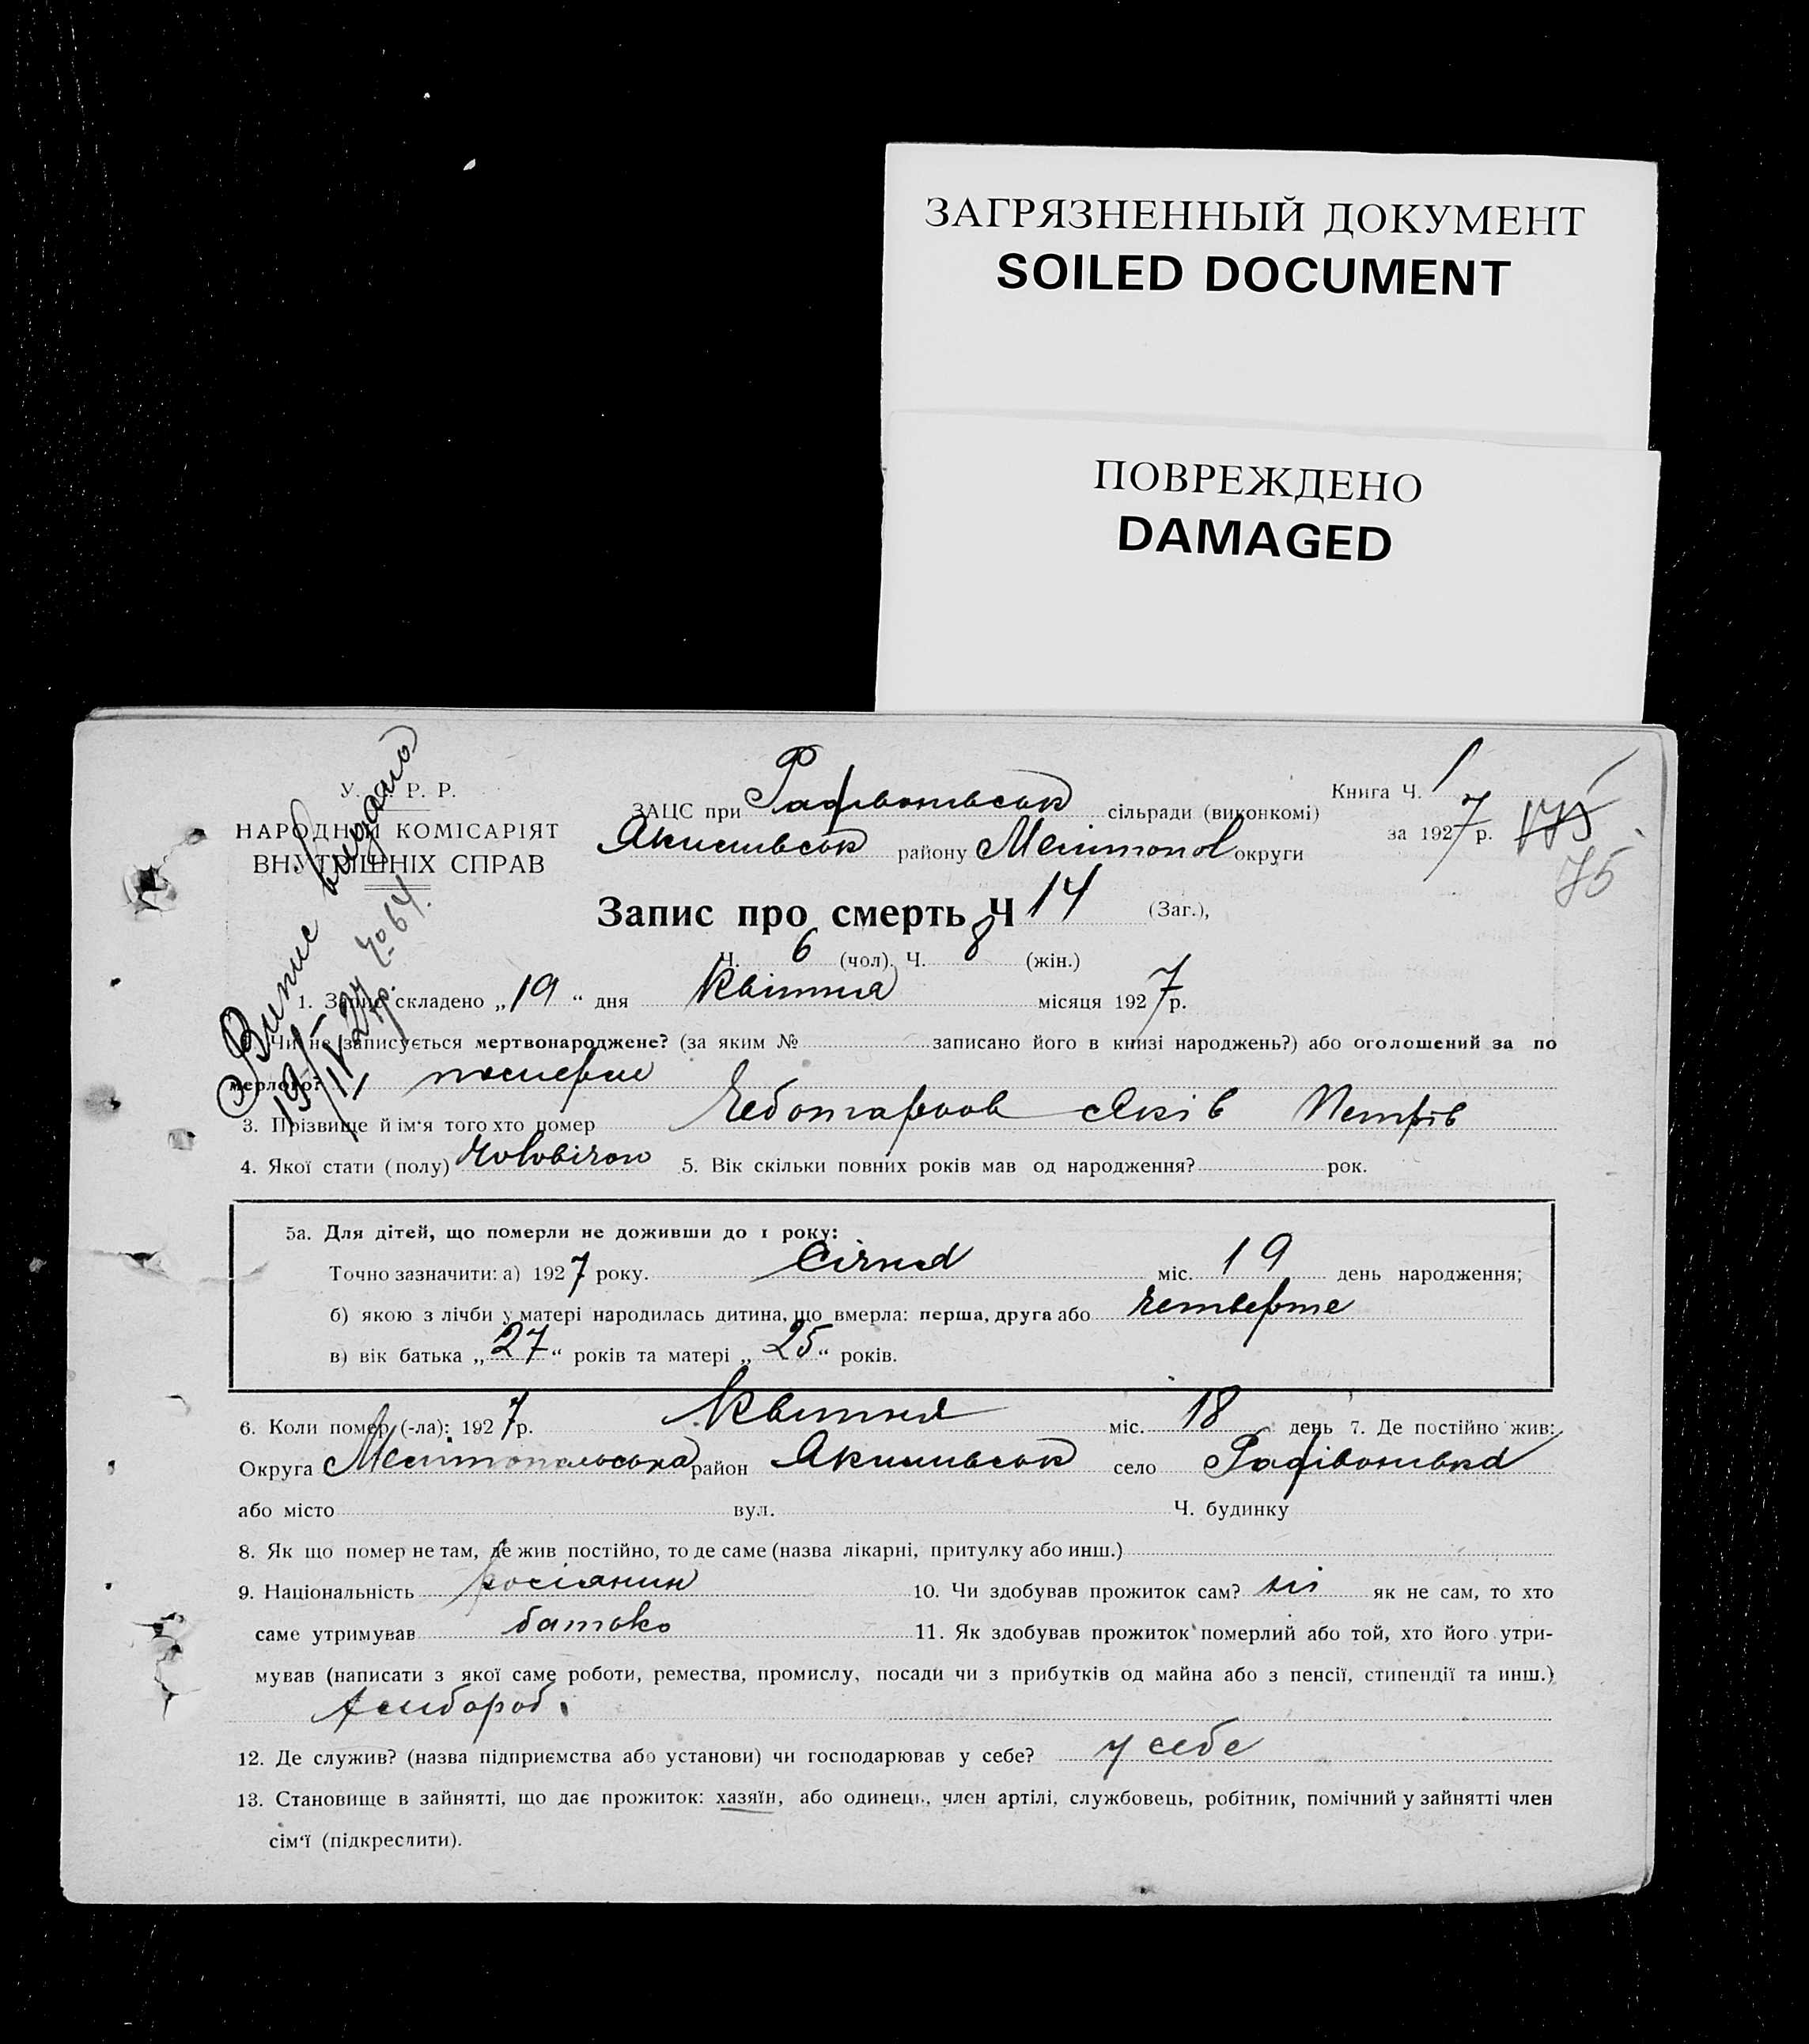 ЗАГРЯЗНЕННЫЙ ДОКУМЕНТ
SOILED DOCUMENT
ПОВРЕЖДЕНО
DAMAGED
У. Р. Р.
НАРОДНИЙ КОМІСАРІЯТ
ВНУТРІШНІХ СПРАВ
Випис видано
19/IV 27 р.
Книга Ч. 1
за 1927 р. 175
75
ЗАЦС при Радівонівськ сільради (виконкомі)
Якимівськ району Мелітопол округи
Запис про смерть Ч 14 (Заг.),
Ч. 6 (чол). Ч. 8 (жін.)
1. Запис складено „19“ дня Квітня місяця 1927 р.
2. Чи не записується мертвонароджене? (за яким № записано його в книзі народжень?) або оголошений за по
мерлого? померше
3. Прізвище й ім'я того хто помер Чеботарьов Яків Петрів
4. Якої стати (полу) чоловічої 5. Вік скільки повних років мав од народження? рок.
5а. Для дітей, що померли не доживши до 1 року:
Точно зазначити: а) 1927 року. Січня міс. 19 день народження;
б) якою з лічби у матері народилась дитина, що вмерла: перша, друга або четверте
в) вік батька „27“ років та матері „25“ років.
6. Коли помер (-ла): 1927 р. Квітня міс. 18 день 7. Де постійно жив:
Округа Мелітопольська район Якимівськ село Радівонівка
або місто вул. Ч. будинку
8. Як що помер не там, де жив постійно, то де саме (назва лікарні, притулку або инш.)
9. Національність росіянин 10. Чи здобував прожиток сам? ні як не сам, то хто
саме утримував батько 11. Як здобував прожиток померлий або той, хто його утри-
мував (написати з якої саме роботи, ремества, промислу, посади чи з прибутків од майна або з пенсії, стипендії та инш.)
хлибороб.
12. Де служив? (назва підприємства або установи) чи господарював у себе? у себе
13. Становище в зайнятті, що дає прожиток: хазяїн, або одинець, член артілі, службовець, робітник, помічний у зайнятті член
сім'ї (підкреслити).